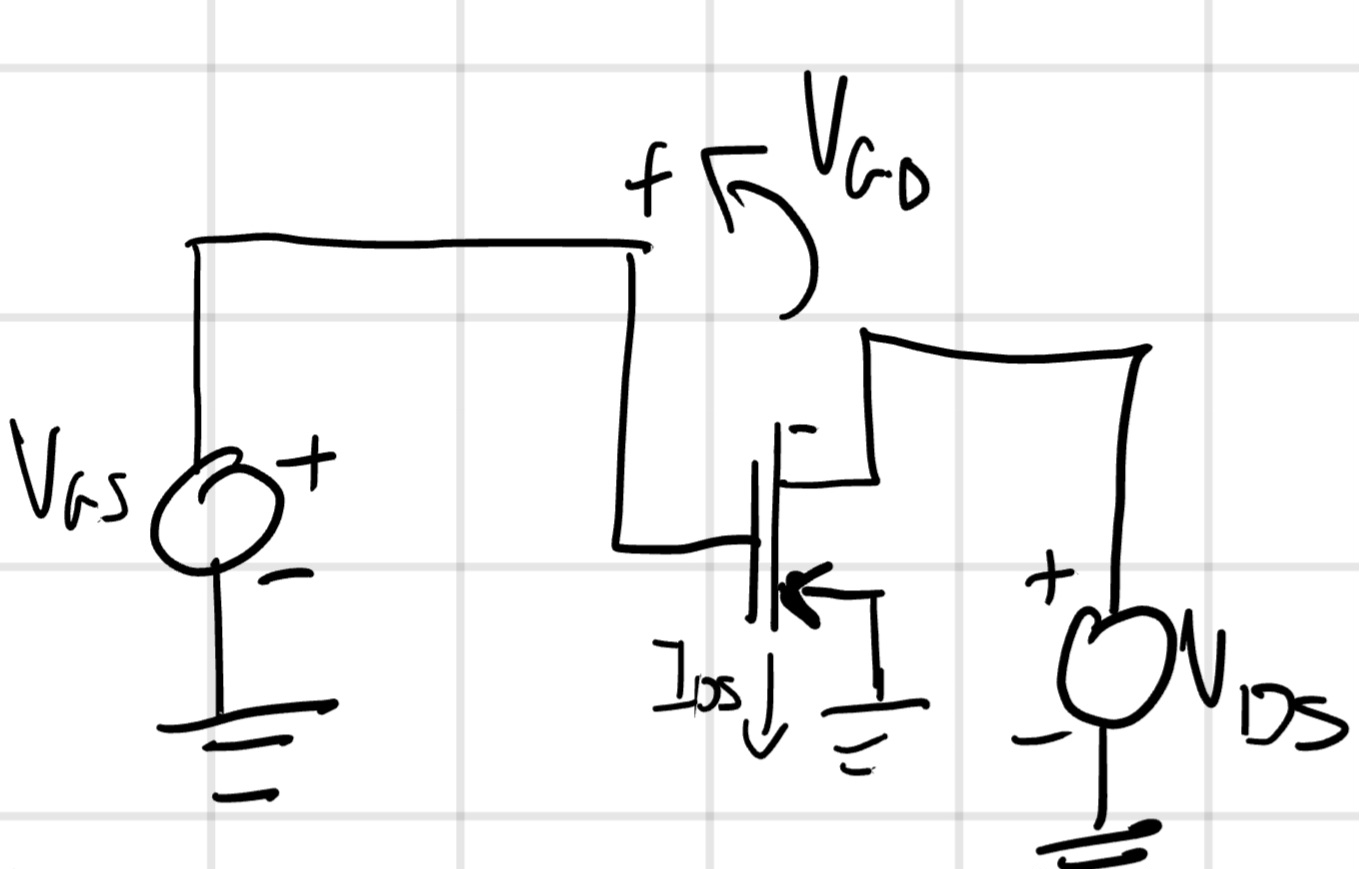 + V_GD
V_GS +
-
-
+
I_DS
- V_DS